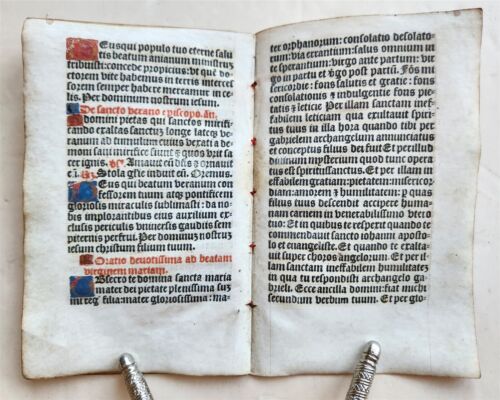 Deusqui populo tuo eterne salu
tis beatum anianum ministrū
tribuisti: concede propicius: vt quē do-
ctorem vite habuimus in terris interces
sorem semper habere mereamur in ce
lis. Per dominum nostrum iesum.
De sancto veranο episcopo. añ.
Domini pietas qui sanctos mirifi
cando exaltas sanctus longe lateq; ve
ranum ad tumulum cuius vexati a de
moni
ter ignis. ℣. Amauit eū dñs & ornauit
eū. Stola glīe induit eū. Oremus.
Deus qui beatum veranum con
fessorem tuum atq; pontificem
gloriosis miraculis sublimasti: da no
bis implorantibus eius auxilium ex
clusis periculis vniuersis gaudiis sem
piternis perfrui. Per dominū nostrū
iesum christum filium tuum.
Oratio deuotissima ad beatam
virginem mariam.
Obsecro te domina sancta maria
mater dei pietate plenissima sum
mi regꝭ filia: mater gloriosissima: ma-
ter orphanorum: consolatio desolato-
rum: via errantium: salus omnium in
te sperantium: virgo ante partum: vir
go in partu et v̓go post partū. Fōs mi
sericordie: fons salutis et gratie: fons
consolationis & indulgentie fons pie-
tatis & leticie Per illam sanctam inef-
fabilem leticiam qua exultauit spiri-
tus tuus in illa hora quando tibi per
gabrielem archangelum annunciatus
et conceptus filius dei fuit Et per illud
diuinum mysterium quod tunc opera
tus est spiritussanctus. Et per illam in
effabilem gratiam: pietatem: misericor
diam: amorem & humilitatem: p quas
filius tuus descendit accipere huma-
nam carnem in venerabilissimo vtero
tuo: Et in quibus te respexit quando te
commendauit sancto iohanni aposto-
lo et euangeliste. Et quando te exalta-
uit super choros angelorum. Et per il-
lam sanctam ineffabilem humilitatem
in qua tu respondisti archangelo ga-
brieli. Ecce ancilla domini: fiat michi
secundum verbum tuum. Et per glo-